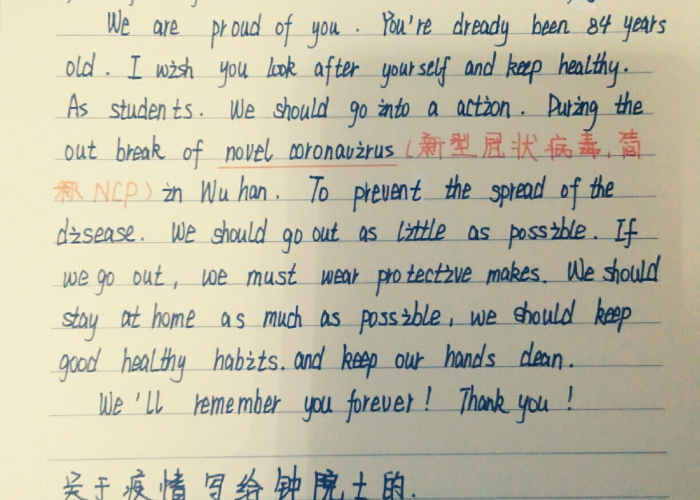 We are proud of you. You're dready been 84 years
old. I wish you look after yourself and keep healthy.
As students. We should go into a action. During the
out break of novel coronavirus (新型冠状病毒,简
称 NCP) in Wu han. To prevent the spread of the
disease. We should go out as little as possible. If
we go out, we must wear protective makes. We should
stay at home as much as possible, we should keep
good healthy habits. and keep our hands clean.
We'll remember you forever! Thank you!
关于疫情写给钟院士的.